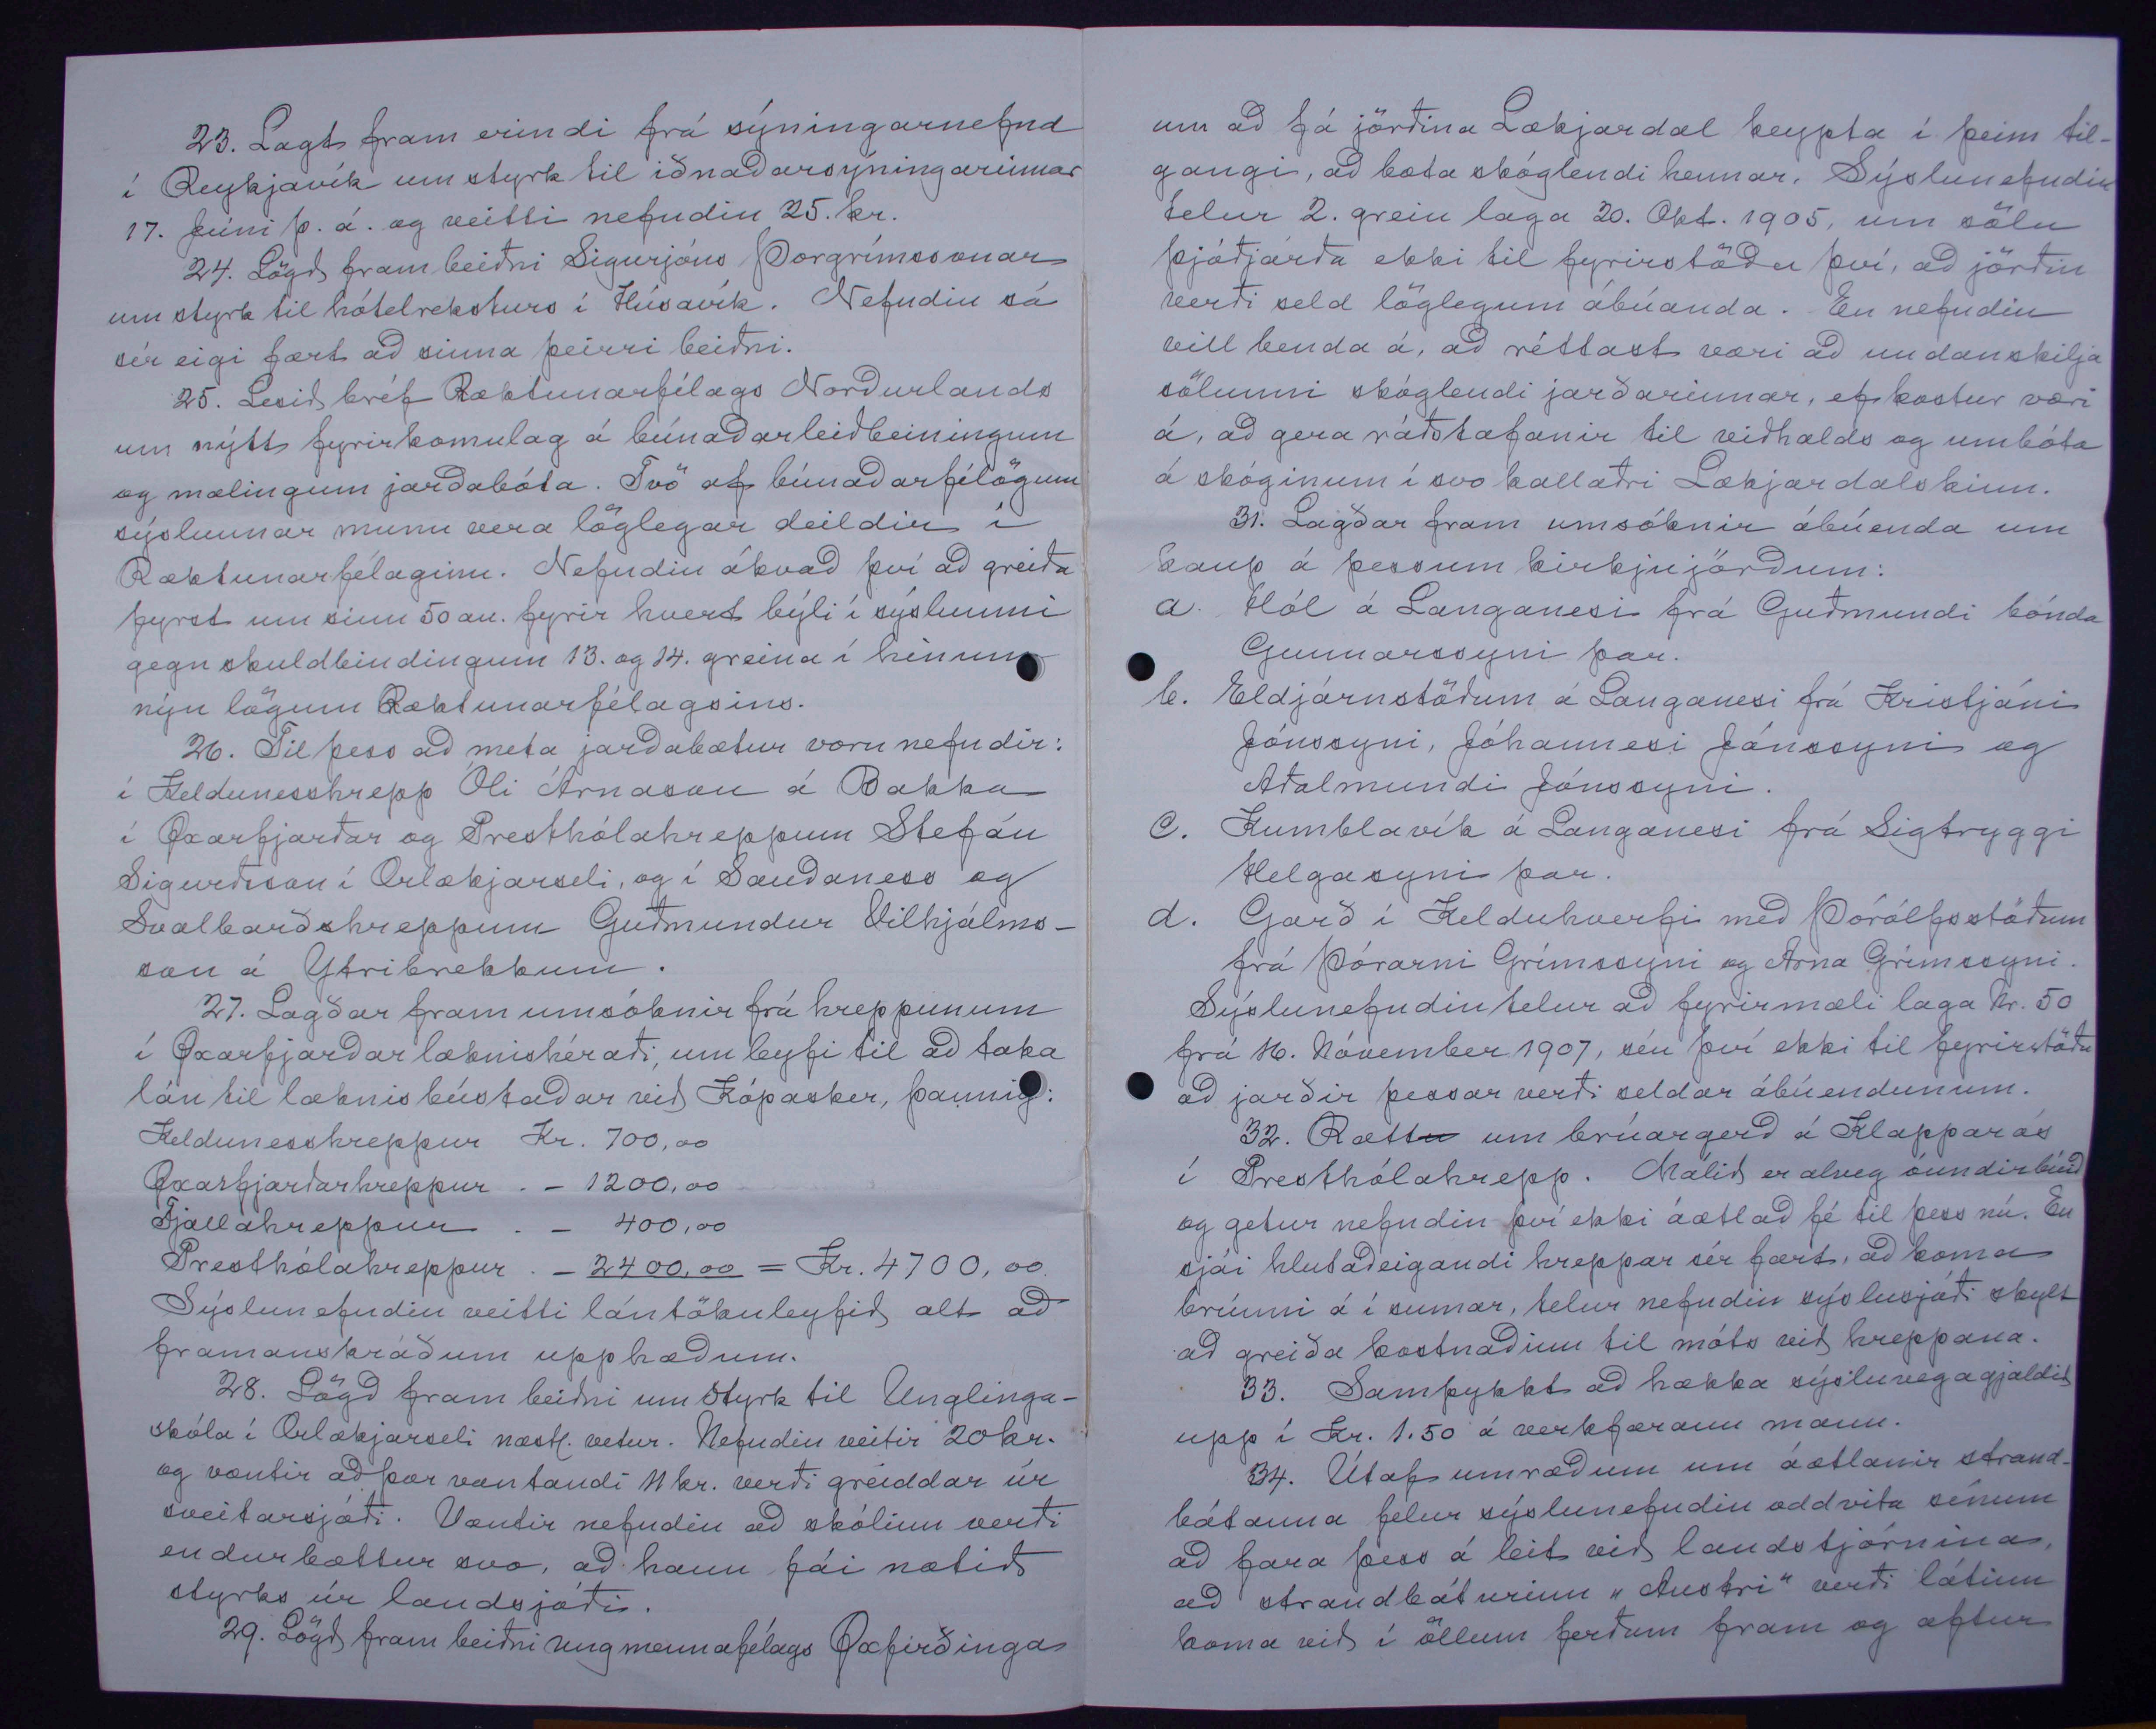 23. Lagt fram erindi frá sýningarnefnd
í Reykjavík um styrk til iðnaðarsýningarinnar
17. Júní þ. á. og veitti nefndin 25. kr.
24. Lögð fram beiðni Sigurjóns Þorgrímssonar
um styrk til hótelreksturs í Húsavík. Nefndin sá
sér eigi fært að sinna þeirri beiðni.
25. Lesið bréf Ræktunarfélags Norðurlands
um nýtt fyrirkomulag á búnaðarleiðbeiningum
og mælingum jarðabóta. Tvö af búnaðarfélögum
sýslunnar munu vera löglegar deildir í
Ræktunarfélaginu. Nefndin ákvað því að greiða
fyrst um sinn 50 au. fyrir hvert býli í sýslunni
gegn skuldbindingum 13. og 14. greina í hinum
nýju lögum Ræktunarfélagsins.
26. Til þess að meta jarðabætur voru nefndir:
í Keldunesshrepp Óli Árnason á Bakka
í Øxarfjarðar og Presthólahreppum Stefán
Sigurðsson í Ærlækjarseli, og í Sauðaness og
Svalbarðshreppum Guðmundur Vilhjálms-
son á Ytribrekkum.
27. Lagðar fram umsóknir frá hreppunum
í Øxarfjarðarlæknishéraði, um leyfi til að taka
lán til læknisbústaðar við Kópasker, þannig:
Keldunesshreppur Kr. 700,00
Øxarfjarðarhreppur . - 1200,00
Fjallahreppur . - 400,00
Presthólahreppur . - 2400,00 = Kr. 4700,00.
Sýslunefndin veitti lántökuleyfið alt að
framanskráðum upphæðum.
28. Lögð fram beiðni um styrk til Unglinga-
skóla í Ærlækjarseli næstl. vetur. Nefndin veitir 20 kr.
og væntir að þar vantandi 11 kr. verði greiddar úr
sveitarsjóði. Væntir nefndin að skólinn verði
endurbættur svo, að hann fái notið
styrks úr landsjóði.
29. Lögð fram beiðni ungmennafélags Øxfirðinga
um að fá jörðina Lækjardal keypta í þeim til-
gangi, að bæta skóglendi hennar. Sýslunefndin
telur 2. grein laga 20. Okt. 1905, um sölu
þjóðjarða ekki til fyrirstöðu því, að jörðin
verði seld löglegum ábúanda. En nefndin
vill benda á, að réttast væri að undanskilja
sölunni skóglendi jarðarinnar, ef kostur væri
á, að gera ráðstafanir til viðhalds og umbóta
á skóginum í svo kallaðri Lækjardalskinn.
31. Lagðar fram umsóknir ábúenda um
kaup á þessum kirkjujörðum:
a. Hól á Langanesi frá Guðmundi bónda
Gunnarssyni þar.
b. Eldjárnstöðum á Langanesi frá Kristjáni
Jónssyni, Jóhannesi Jónssyni og
Aðalmundi Jónssyni.
c. Kumblavík á Langanesi frá Sigtryggi
Helgasyni þar.
d. Garð í Kelduhverfi með Þórólfsstöðum
frá Þórarni Grímssyni og Árna Grímssyni.
Sýslunefndin telur að fyrirmæli laga Nr. 50
frá 16. Nóvember 1907, séu því ekki til fyrirstöðu
að jarðir þessar verði seldar ábúendunum.
32. Rætt um brúargerð á Klapparós
í Presthólahrepp. Málið er alveg óundirbúið
og getur nefndin því ekki áætlað fé til þess nú. En
sjái hlutaðeigandi hreppar sér fært, að koma
brúnni á í sumar, telur nefndin sýslusjóði skylt
að greiða kostnaðinn til móts við hreppana.
33. Samþykkt að hækka sýsluvegagjaldið
upp í Kr. 1.50 á verkfærann mann.
34. Útaf umræðum um áætlanir strand-
bátanna felur sýslunefndin oddvita sínum
að fara þess á leit við landstjórnina,
að strandbáturinn „Austri“ verði látinn
koma við í öllum ferðum fram og aftur